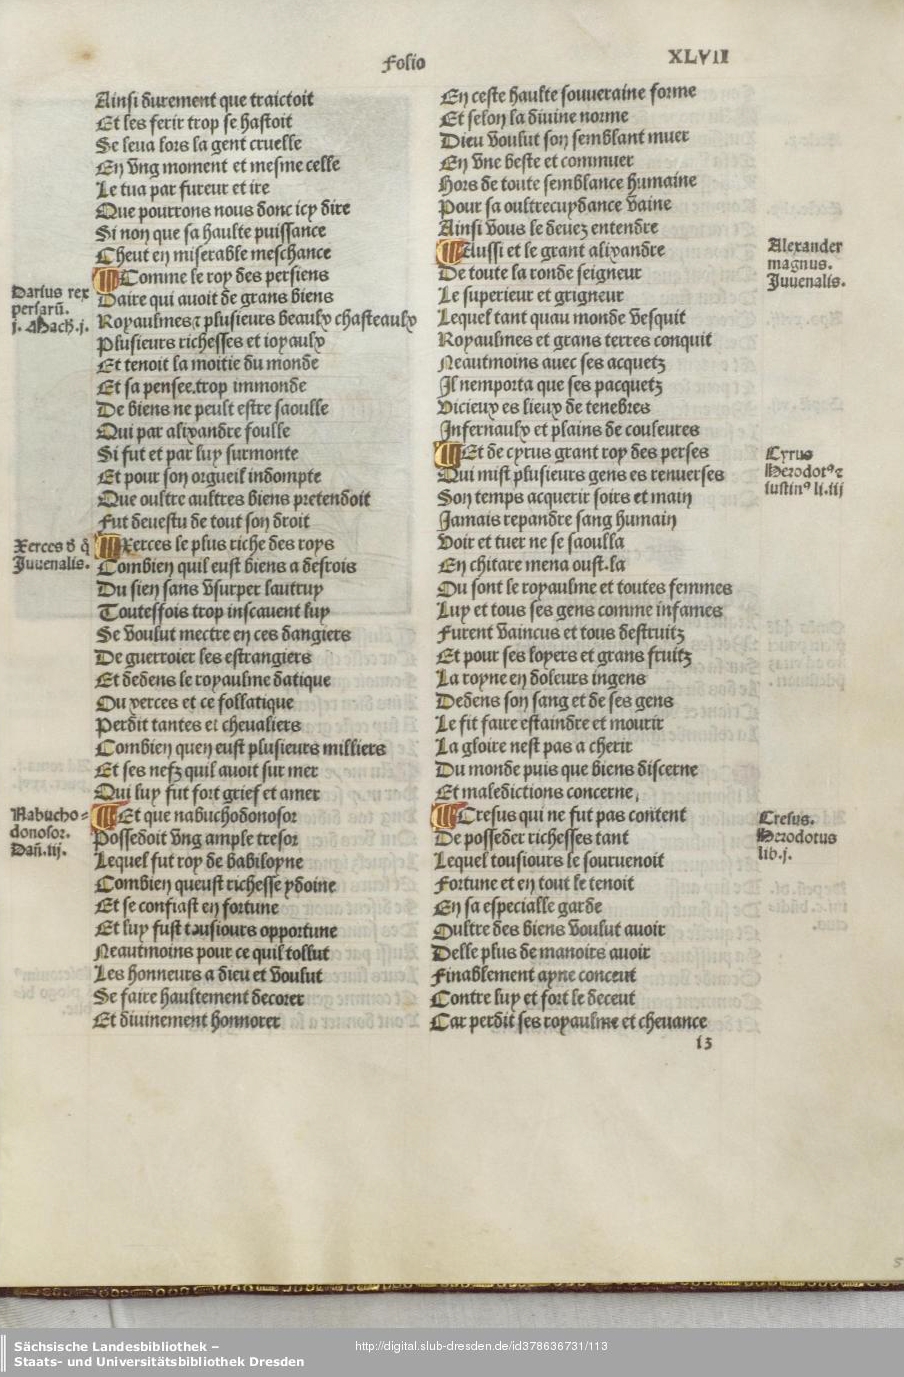 Folio
XLVII
Ainsi durement que traictoit
Et les ferir trop se hastoit
Se leua lors la gent cruelle
En vng moment et mesme celle
Le tua par fureur et ire
Que pourrons nous donc icy dire
Si non que sa haulte puissance
Cheut en miserable meschance
Darius rex
persarū.
j. Mach. j.
¶ Comme le roy des persiens
Daire qui auoit de grans biens
Royaulmes ⁊ plusieurs beaulx chasteaulx
Plusieurs richesses et ioyaulx
Et tenoit la moitie du monde
Et sa pensee.trop immonde
De biens ne peult estre saoulle
Qui par alixandre foulle
Si fut et par luy surmonte
Et pour son orgueil indompte
Que oultre aultres biens pretendoit
Fut deuestu de tout son droit
Xerces
Juuenalis.
¶ Xerces le plus riche des roys
Combien quil eust biens a desrois
Du sien sans vsurper lautruy
Toutesfois trop inscauent luy
Se voulut mectre en ces dangiers
De guerroier les estrangiers
Et dedens le royaulme datique
Ou xerces et ce follatique
Perdit tantes et cheualiers
Combien quen eust plusieurs milliers
Et ses nefz quil auoit sur mer
Qui luy fut fort grief et amer
Nabucho=
donosor.
Dañ. iij.
¶ Et que nabuchodonosor
Possedoit vng ample tresor
Lequel fut roy de babiloyne
Combien queust richesse ydoine
Et se confiast en fortune
Et luy fust tousiours opportune
Neautmoins pour ce quil tollut
Les honneurs a dieu et voulut
Se faire haultement decorer
Et diuinement honnorer
En ceste haulte souueraine forme
Et selon la diuine norme
Dieu voulut son semblant muer
En vne beste et commuer
Hors de toute semblance humaine
Pour sa oultrecuydance vaine
Ainsi vous le deuez entendre
¶ Aussi et le grant alixandre
Alexander
magnus.
Juuenalis.
De toute la ronde seigneur
Le superieur et grigneur
Lequel tant quau monde vesquit
Royaulmes et grans terres conquit
Neautmoins auec ses acquetz
Il nemporta que ses pacquetz
Vicieux es lieux de tenebres
Infernaulx et plains de couleures
¶ Et de cyrus grant roy des perses
Cyrus
Herodotꝰ ⁊
iustinꝰ li.iij
Qui mist plusieurs gens es renuerses
Son temps acquerir soirs et main
Jamais repandre sang humain
Voir et tuer ne se saoulla
En chitare mena oust.la
Ou sont le royaulme et toutes femmes
Luy et tous ses gens comme infames
Furent vaincus et tous destruitz
Et pour ses loyers et grans fruitz
La royne en doleurs ingens
Dedens son sang et de ses gens
Le fit faire estaindre et mourir
La gloire nest pas a cherir
Du monde puis que biens discerne
Et maledictions concerne,
¶ Cresus qui ne fut pas content
Cresus.
Herodotus
lib.j.
De posseder richesses tant
Lequel tousiours le souruenoit
Fortune et en tout le tenoit
En sa especialle garde
Oultre des biens voulut auoir
Delle plus de manoirs auoir
Finablement apne conceut
Contre luy et fort le deceut
Car perdit ses royaulme et cheuance
i3
Sächsische Landesbibliothek –
Staats- und Universitätsbibliothek Dresden
http://digital.slub-dresden.de/id378636731/113